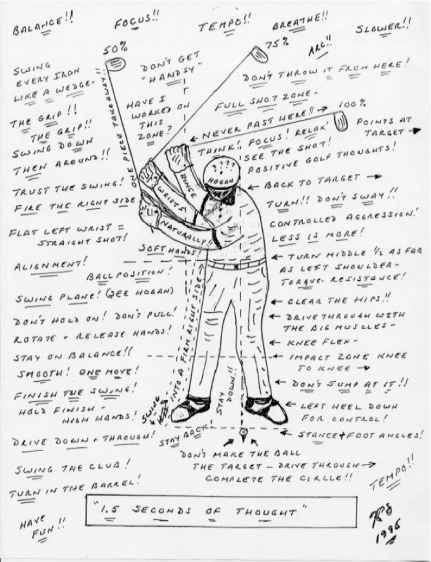 BALANCE!! FOCUS!! TEMPO!! BREATHE!! SLOWER!!
50%
75%
ARC!!
SWING
EVERY IRON
LIKE A WEDGE.
DON'T GET
"HANDSY"
DON'T THROW IT FROM HERE!
THE GRIP!!
THE GRIP!!
ONE PIECE TAKEAWAY!!
HAVE I
WORKED ON
THIS
ZONE?
FULL SHOT ZONE-
100%
NEVER PAST HERE!!
POINTS AT
TARGET
SWING DOWN
THEN AROUND!!
THINK! FOCUS! RELAX!
SEE THE SHOT!
POSITIVE GOLF THOUGHTS!
TRUST THE SWING!
HINGE
WRISTS
????
HOGAN
BACK TO TARGET
FIRE THE RIGHT SIDE
TURN!! DON'T SWAY!!
CONTROLLED AGGRESSION!
LESS IS MORE!
FLAT LEFT WRIST =
STRAIGHT SHOT!
NATURALLY!
SOFT HANDS!
ALIGNMENT!
BALL POSITION!
TURN MIDDLE 1/2 AS FAR
AS LEFT SHOULDER-
TORQUE. RESISTANCE!
SWING PLANE! (SEE HOGAN)
DON'T HOLD ON! DON'T PULL!
ROTATE + RELEASE HANDS!
CLEAR THE HIPS!!
DRIVE THROUGH WITH
THE BIG MUSCLES-
KNEE FLEX-
STAY ON BALANCE!!
SMOOTH! ONE MOVE!
IMPACT ZONE KNEE
TO KNEE
FINISH THE SWING!
HOLD FINISH -
HIGH HANDS!
INTO A FIRM RIGHT SIDE
STAY
DOWN!!
DON'T JUMP AT IT!!
LEFT HEEL DOWN
FOR CONTROL!
DRIVE DOWN + THROUGH!
STAY BACK
STANCE + FOOT ANGLES!
SWING THE CLUB!
TURN IN THE BARREL!
DON'T MAKE THE BALL
THE TARGET - DRIVE THROUGH
COMPLETE THE CIRCLE!!
TEMPO!!
"1.5 SECONDS OF THOUGHT"
HAVE
FUN!!
1996